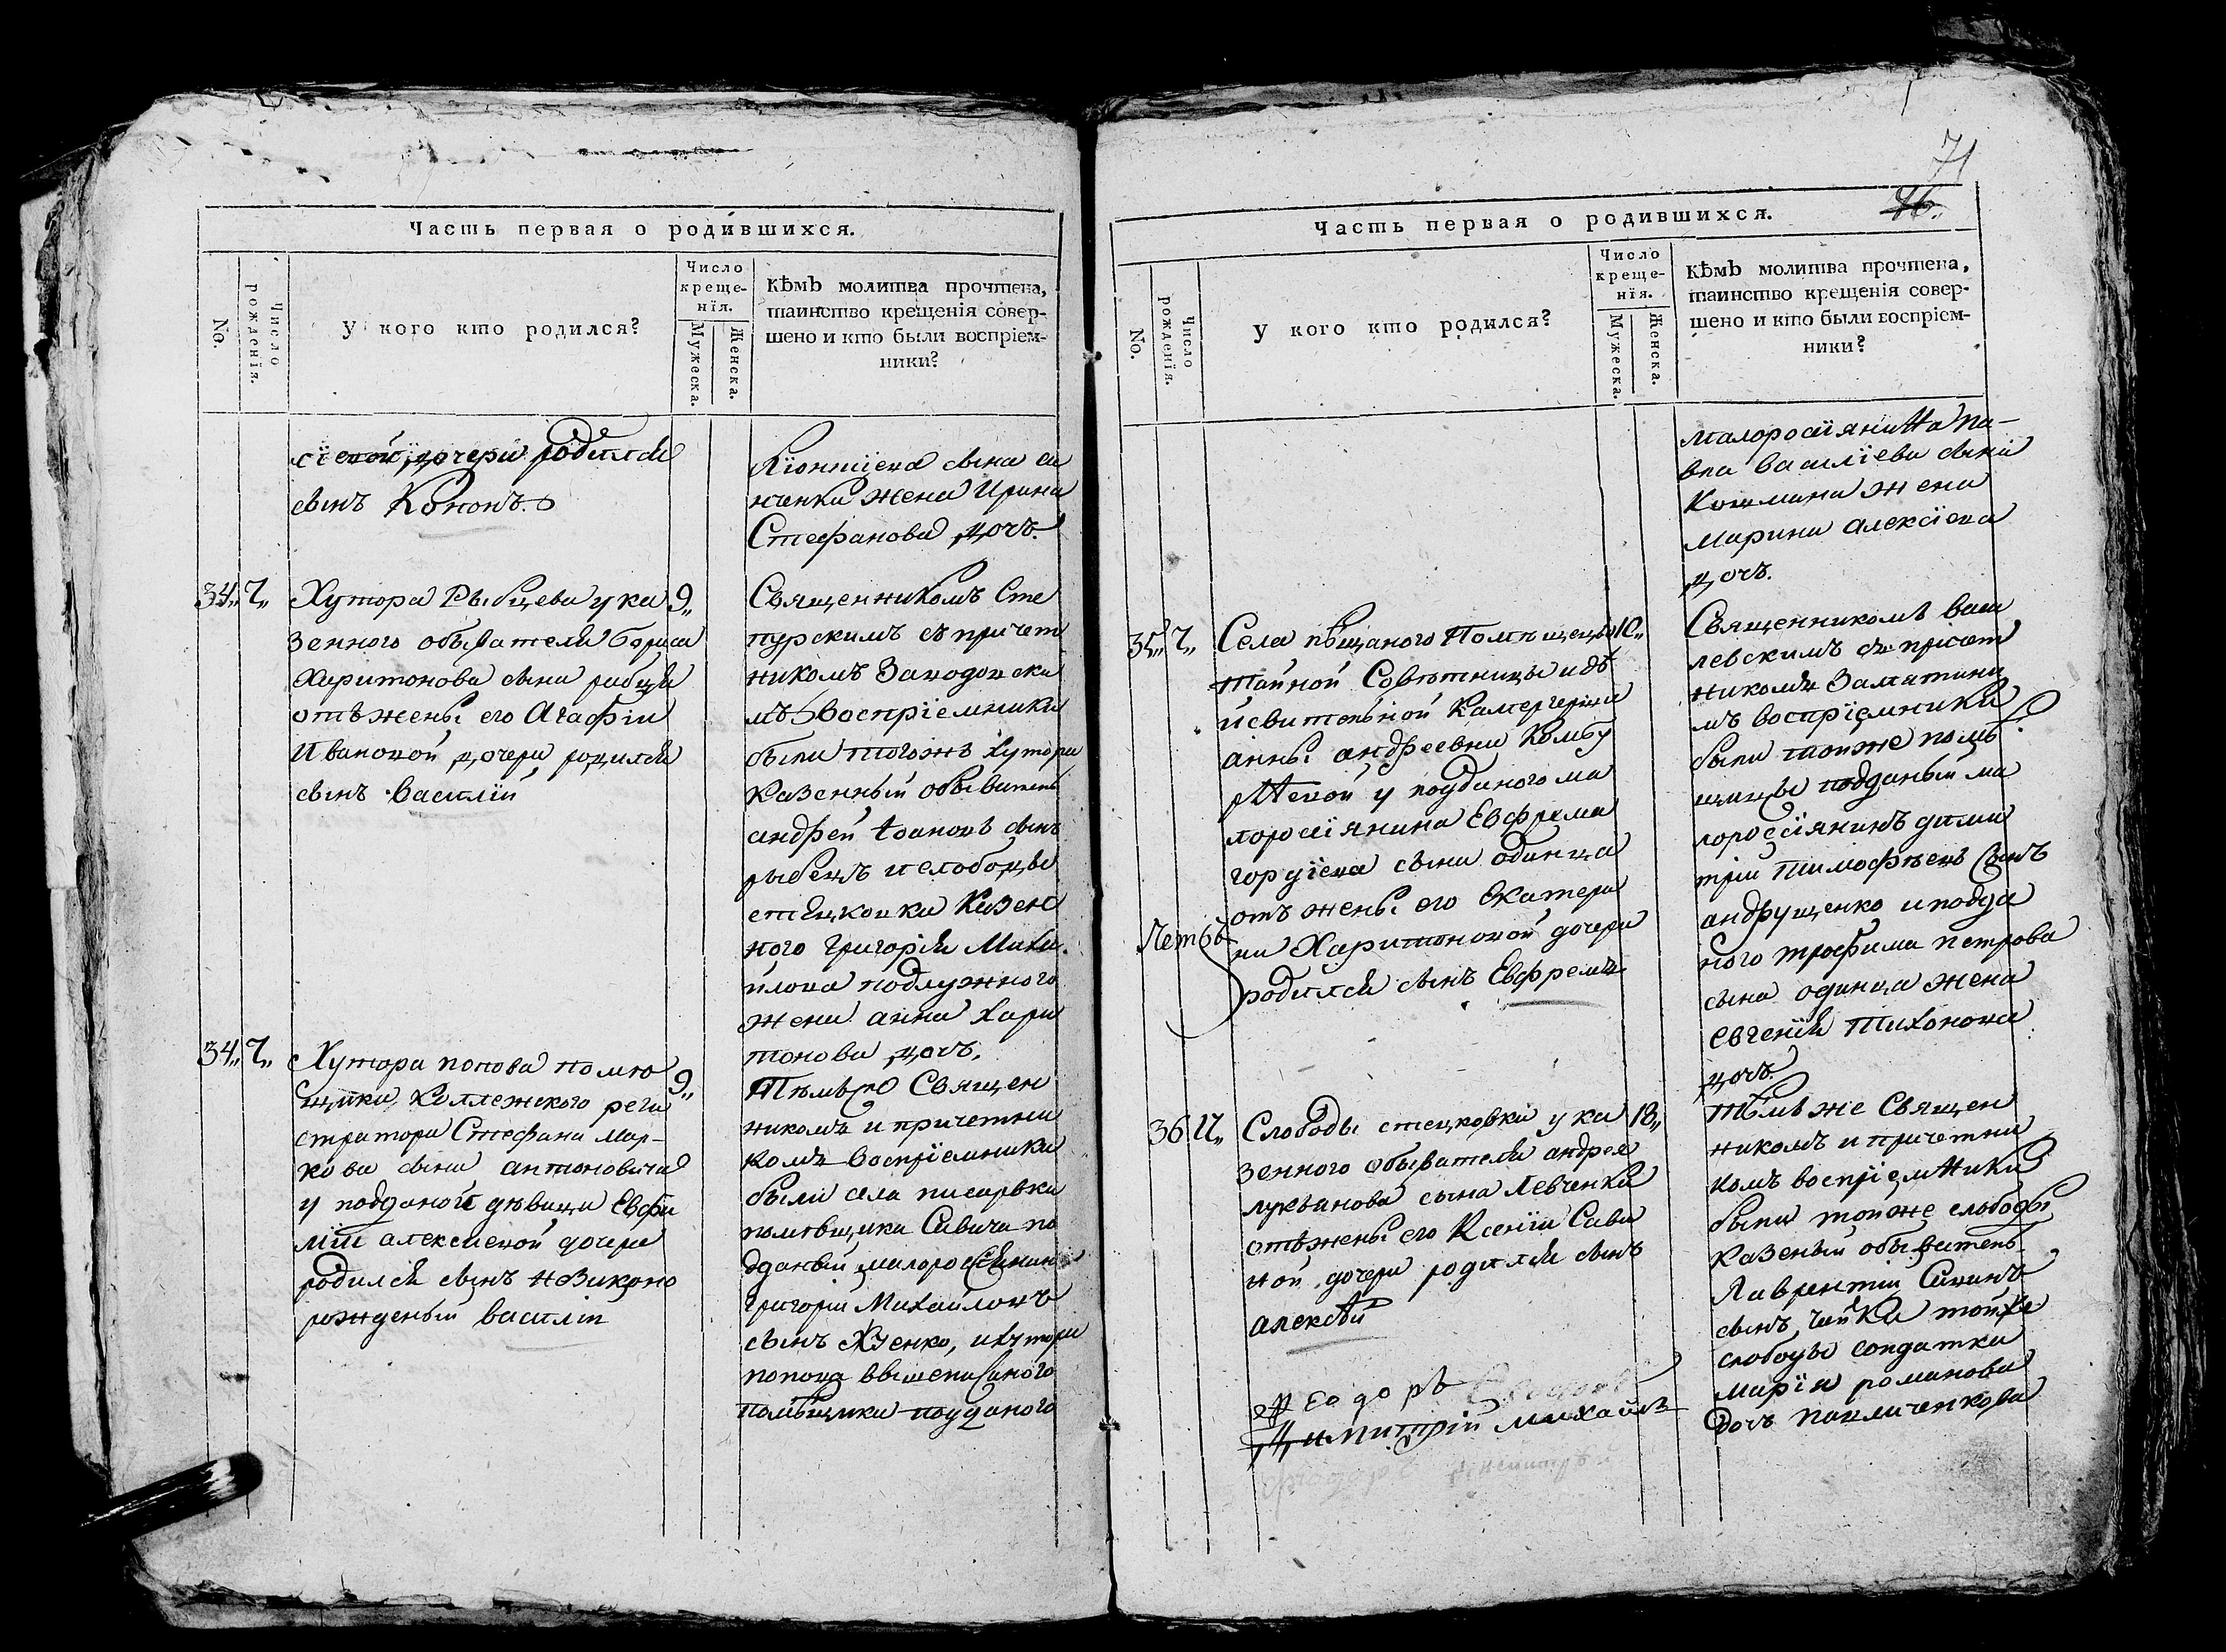 Часть первая о родившихся.
No.
Число рожденїя.
У кого кто родился?
Число
креще-
нїя.
Мужеска.
Женска.
Кѣмъ молитва прочтена,
таинство крещенія совер-
шено и кто были воспріем-
ники?
сїевой дочери родился
сынъ Кононъ.
сына
жена Ирина
Стефанова дочь.
34„ 7„ Хутора Рыбцева у ка 9„
зенного обывателя бориса
Харитонова сына рибца
отъ жены его Агафіи
Ивановой дочери родился
сынъ василїй
Священникомъ Сте
пурскимъ съ причет
никомъ
мъ воспріемники
были тогожъ хутора
казенный обыватель
андрей Іоановъ сынъ
рыбецъ и слободы
стецковки Казен
ного Григорія Миха
илова подлужного
жена анна Хари
тонова дочь.
34„ 7„ Хутора попова помѣ 9„
щика Коллежского реги
стратора Стефана Мар-
кова сына антоновича
у подданой дѣвици Евфи
міи алексіевой дочери
родился сынъ незаконо
рожденый василій
Тѣмъ же Священ
никомъ и причетни
комъ воспріемники
были села писаревки
помѣщика Савича по
дданый малоросіянинъ
григорій Михайловъ
сынъ енко, и хутора
попова вышеписаного
помѣщика подданого
71
46.
Часть первая о родившихся.
No.
Число рожденїя.
У кого кто родился?
Число
креще-
нїя.
Мужеска.
Женска.
Кѣмъ молитва прочтена,
таинство крещенія совер-
шено и кто были воспріем-
ники?
малоросіянина па-
вла василіева сына
Кошмана жена
марина алексіева
дочь.
35„ 7„ Села пѣщаного Помѣщицы 10„
тайной Совѣтницы и дѣ
йсвительной Камергерши
анны андреевны Комбу
рлеевой у подданого ма
лоросіянина Евфрема
гордіева сына одинца
отъ жены его Екатери
ны Харитоновой дочери
родился сынъ Евфремъ
Священникомъ васи
левскимъ съ причет
никомъ Заматини
мъ воспріемники
были тойже помѣ
щицы подданый ма
лороссіянинъ дими
трій Тимофѣевъ Сынъ
андрущенко и подда
ного трофима петрова
сына одинца жена
евгенія Тихонова
дочь.
36 Слободы стецковки у ка 18„
зенного обывателя андрея
лукьянова сына Левченка
отъ жены его Ксеніи Сави
ной дочери родился сынъ
алексѣй
Тѣмъ же Священ
никомъ и причетни
комъ воспріемники
были тойже слободы
казеный обыватель
Лаврентій Савинъ
сынъ Чайка тойже
слободы солдатка
марія романова
дочь павличенкова
Ѳеодоръ
Димитрій михайлъ